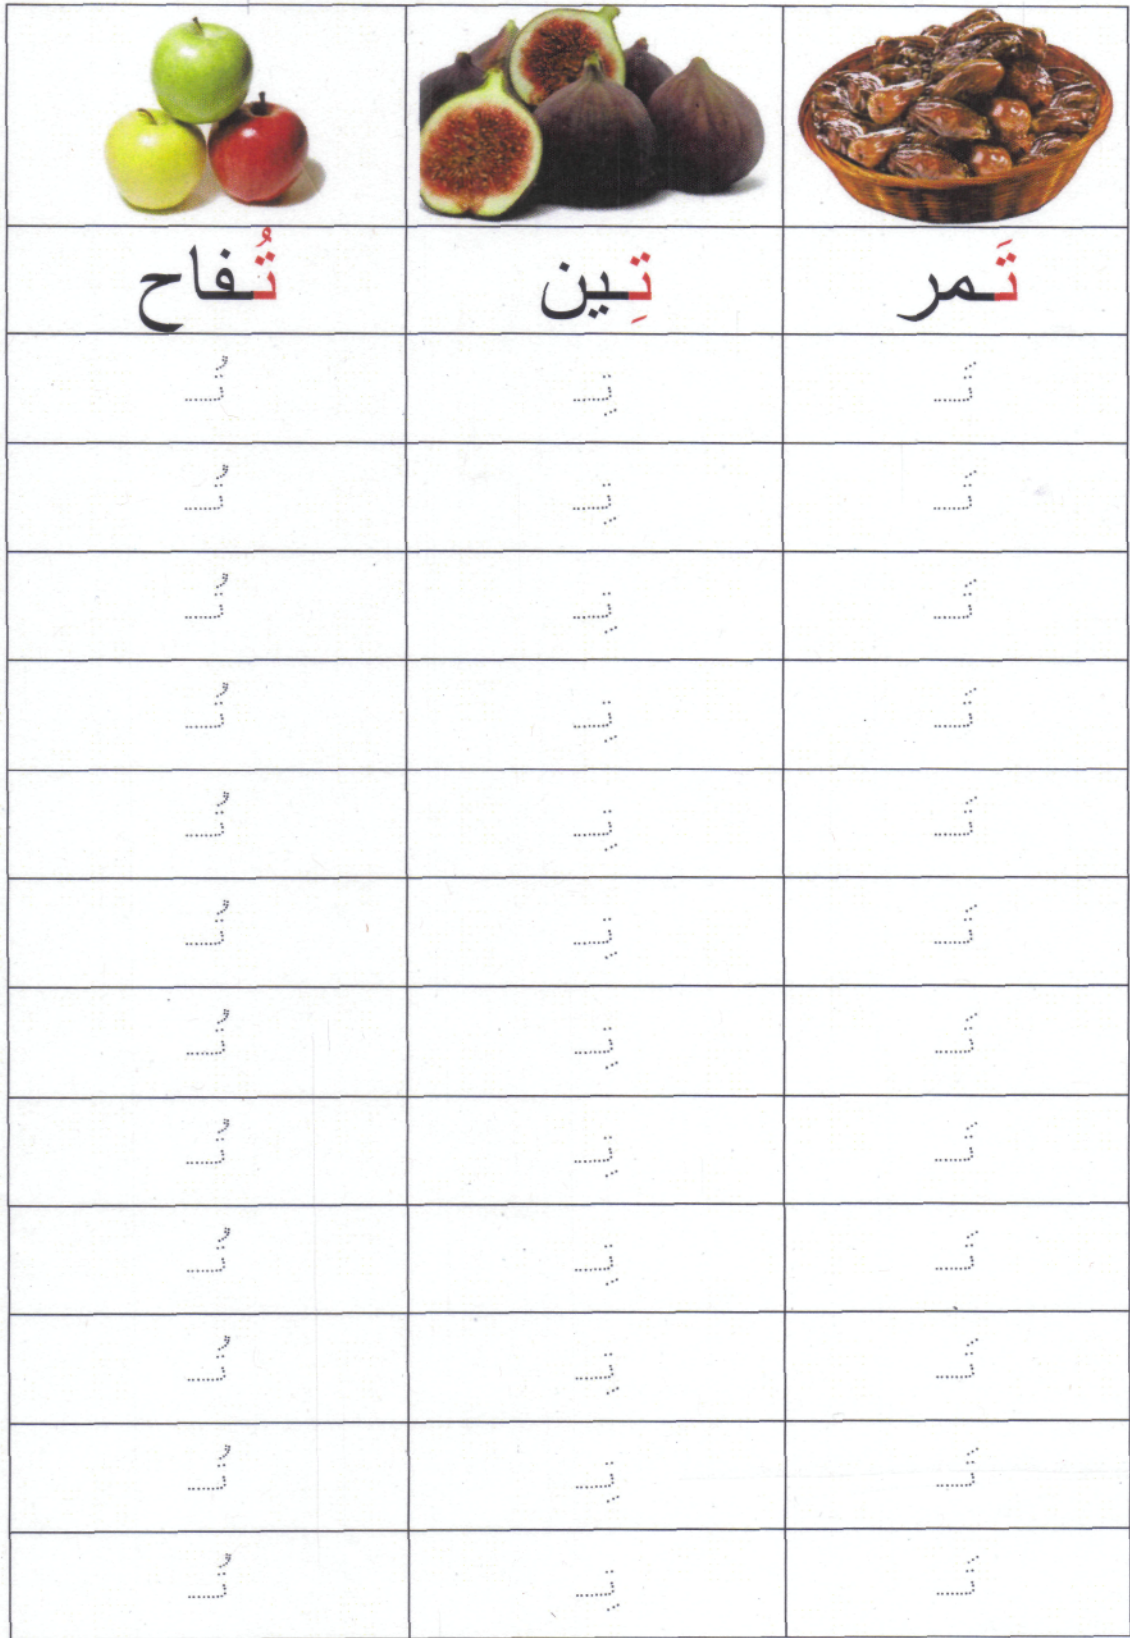 تَـمر تِـين تُـفاح
تَـ تِـ تُـ
تَـ تِـ تُـ
تَـ تِـ تُـ
تَـ تِـ تُـ
تَـ تِـ تُـ
تَـ تِـ تُـ
تَـ تِـ تُـ
تَـ تِـ تُـ
تَـ تِـ تُـ
تَـ تِـ تُـ
تَـ تِـ تُـ
تَـ تِـ تُـ